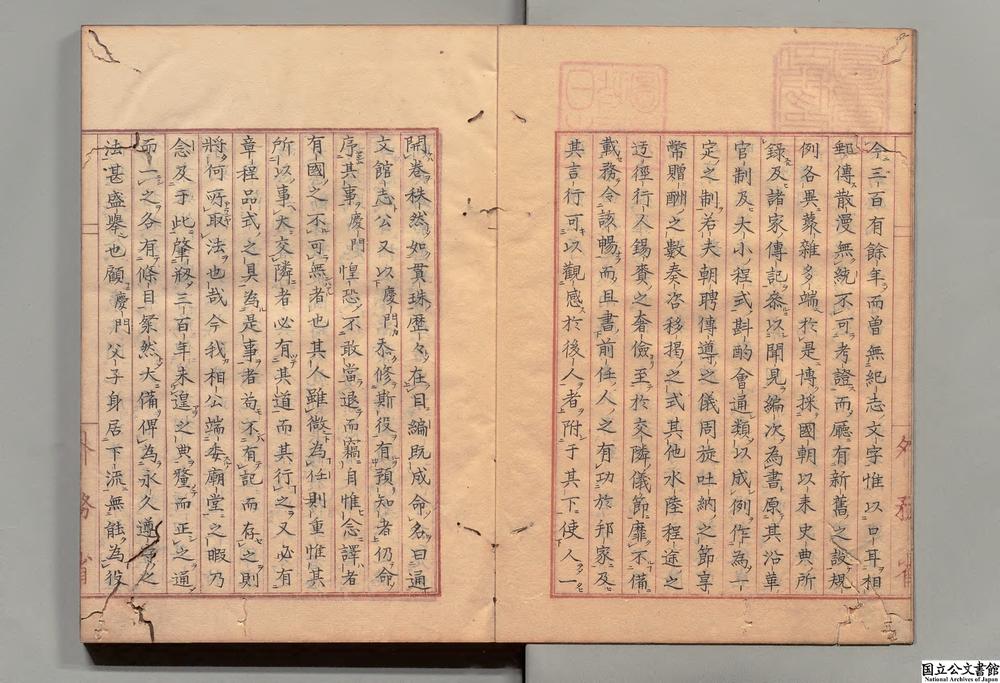 今三百有餘年而曾無紀志文字惟以口耳相
郵傳散漫無統不可考證而廳有新舊之設規
例各異叢雜多端於是博採國朝以来史典所
錄及諸家傳記叅以聞見編次為書原其沿革
官制及大小程式斟酌會通類以成例作為一
定之制若夫朝聘傳導之儀周旋吐納之節享
幣贈酬之數奏咨移揭之式其他水陸程途之
迂徑行人錫賚之奢儉至於交隣儀節靡不備
載務令該暢而且書前任人之有功於邦家及
其言行可以觀感於後人者附于其下使人一
開卷秩然如貫珠歷々在目編既成命名曰通
文館志公又以慶門忝修斯役有預知者仍命
序其事慶門惶恐不敢當退而竊自惟念譯者
有國之不可無者也其人雖微為任則重惟其
所以事大交隣者必有其道而其行之又必有
章程品式之具為是事者苟不有記而存之則
將何所取法也哉今我相公端委廟堂之暇乃
念及于此肇剏三百年未遑之典釐而正之通
而一之各有條目粲然大備俾為永久遵守之
法甚盛擧也顧慶門父子身居下流無能為役
外務省
外務省
国立公文書館
National Archives of Japan